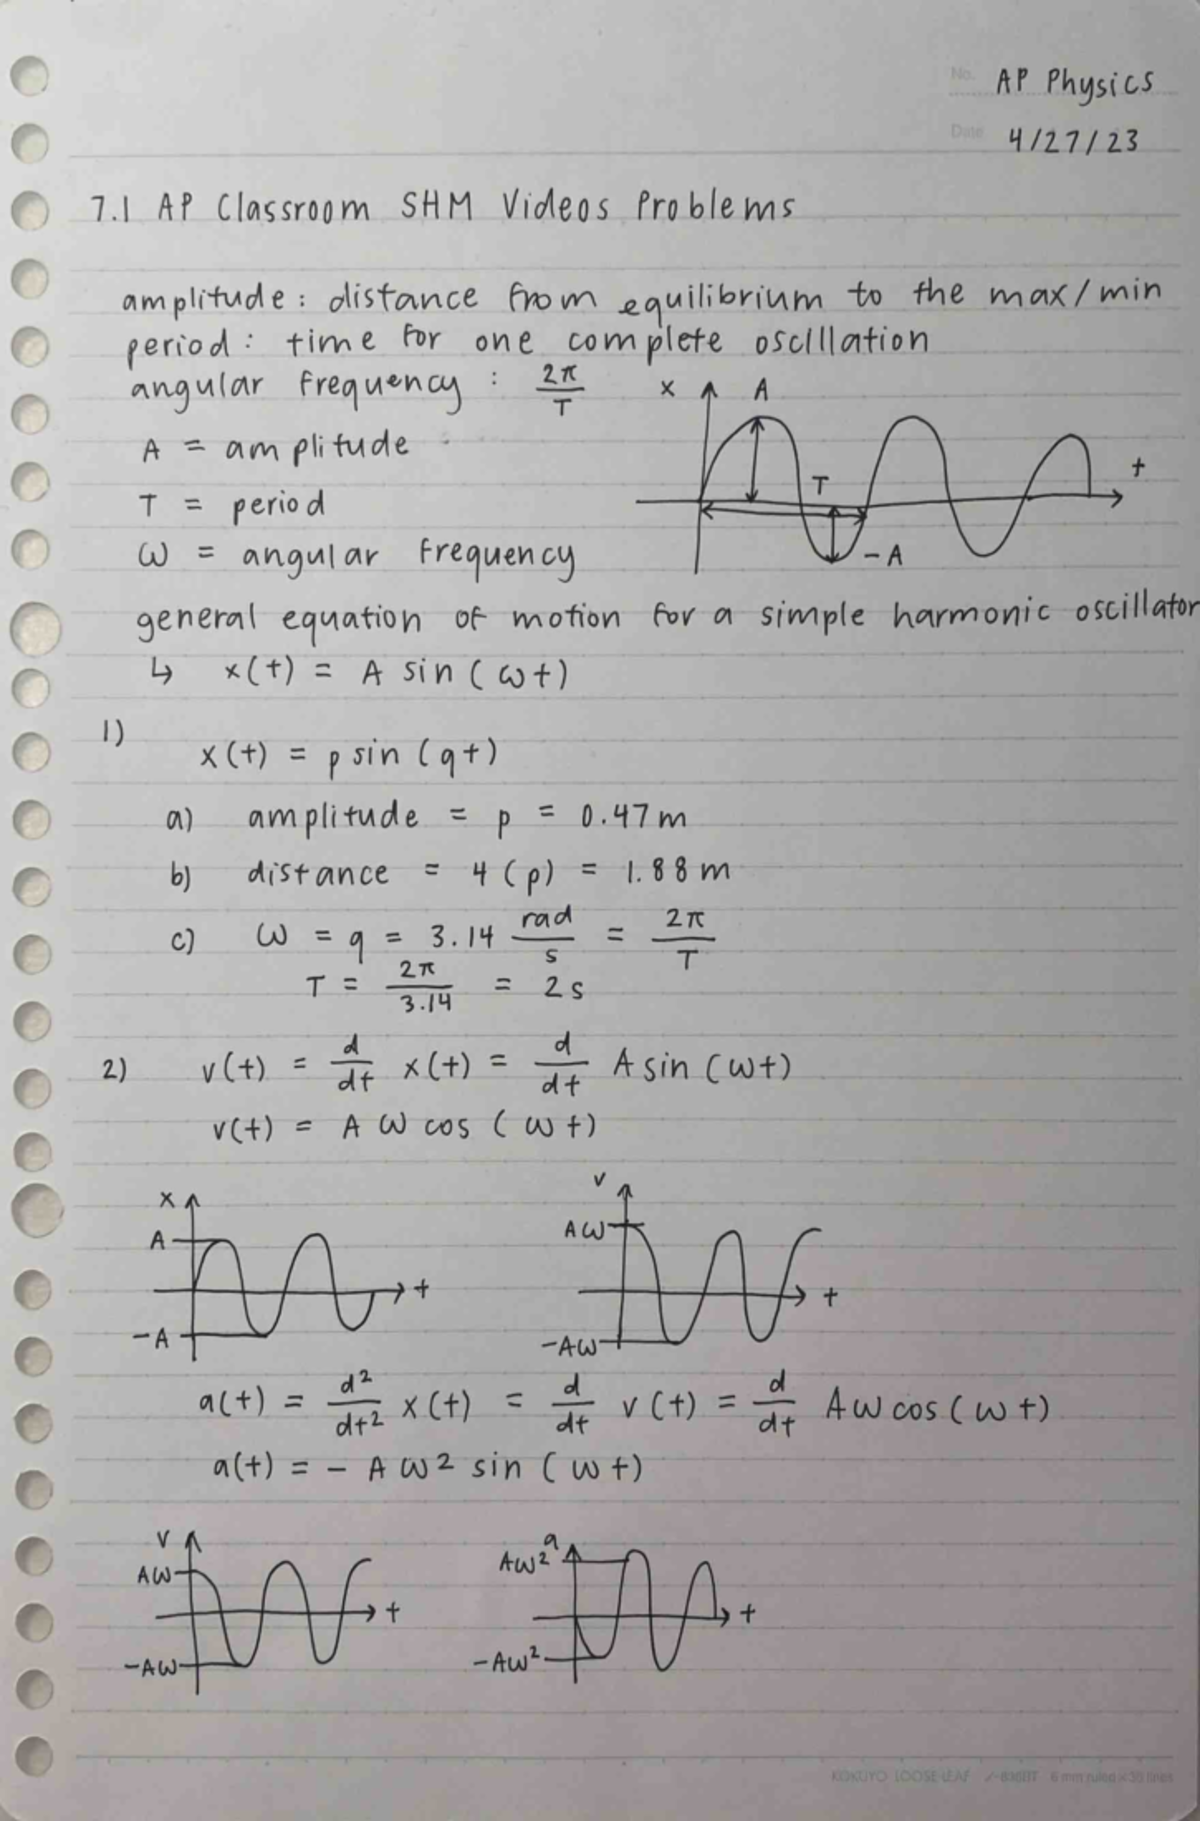 No. AP Physics
Date 4/27/23
7.1 AP Classroom SHM Videos Problems
amplitude: distance from equilibrium to the max/min
period: time for one complete oscillation
angular frequency : 2π/T
A = amplitude
T = period
ω = angular frequency
x A t T -A
general equation of motion for a simple harmonic oscillator
↳ x(t) = A sin(ωt)
1)
x(t) = p sin(qt)
a) amplitude = p = 0.47m
b) distance = 4(p) = 1.88m
c) ω = q = 3.14 rad/s = 2π/T
T = 2π/3.14 = 2s
2) v(t) = d/dt x(t) = d/dt A sin(ωt)
v(t) = Aω cos(ωt)
x A -A t
v Aω -Aω t
a(t) = d²/dt² x(t) = d/dt v(t) = d/dt Aω cos(ωt)
a(t) = - Aω² sin(ωt)
v Aω -Aω t
a Aω² -Aω² t
KOKUYO LOOSE-LEAF 6 mm ruled